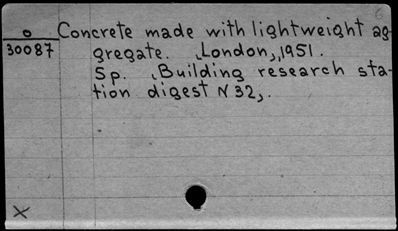 6
o Concrete made with lightweight ag-
30087 gregate. London, 1951.
5p. Building research sta-
tion digest N 32,.
X